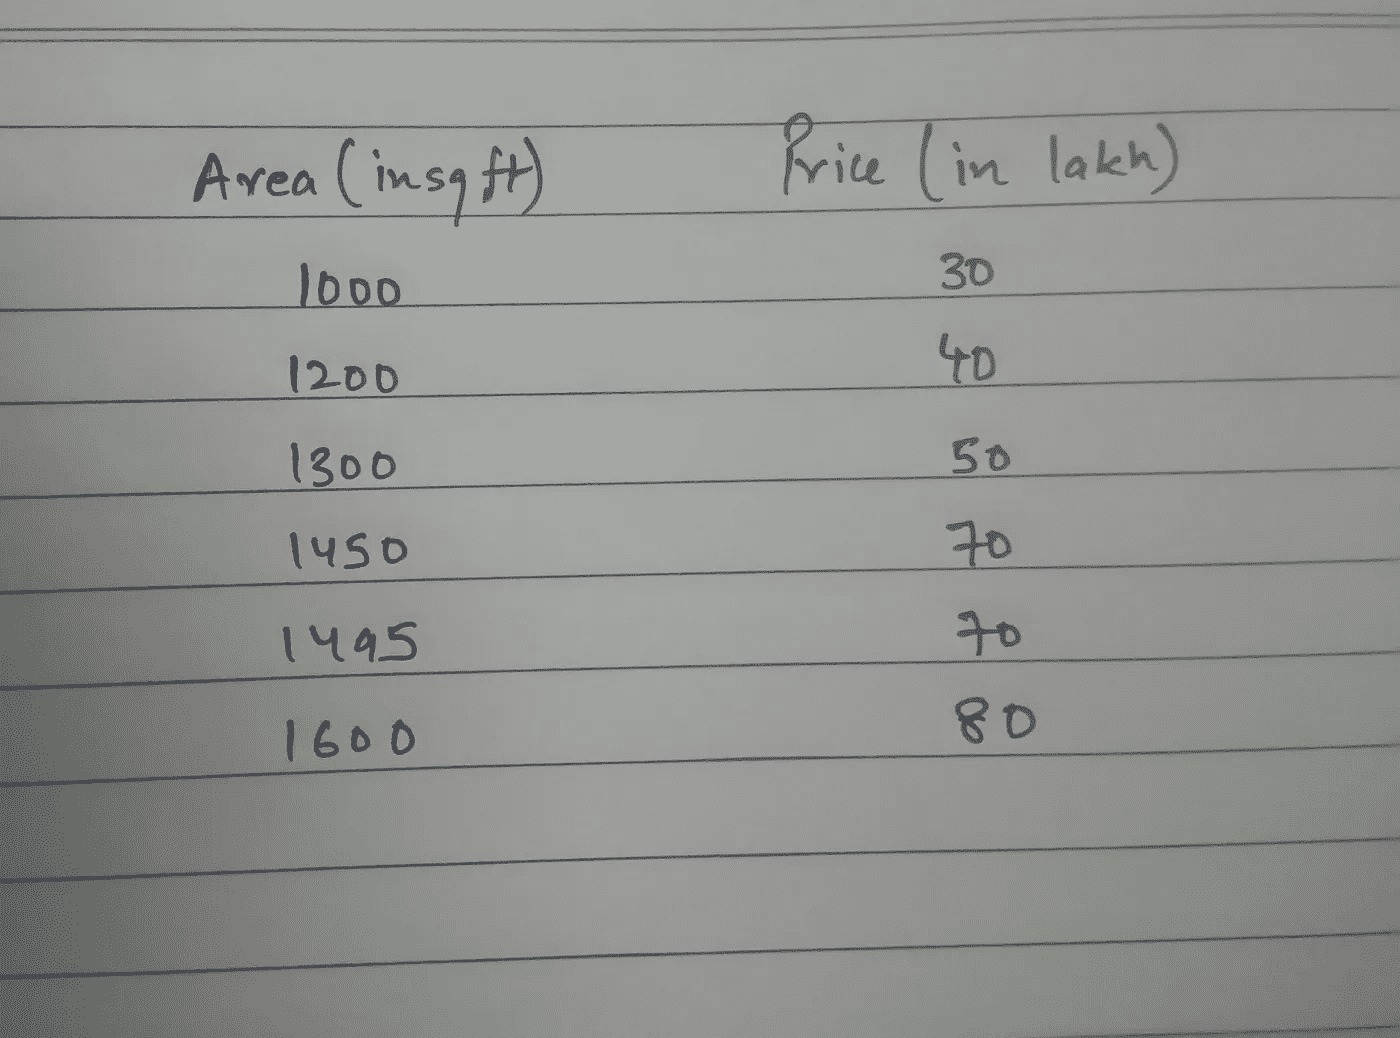 Area (in sq ft) Price (in lakh)
1000 30
1200 40
1300 50
1450 70
1495 70
1600 80